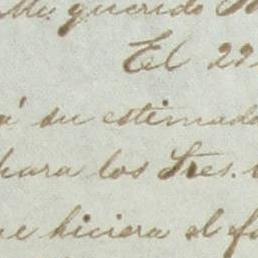 Mi querido
El 22
á su estimada
para los Sres.
que hiciera el